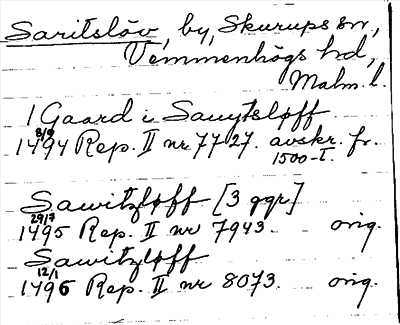 Saritslöv, by, Skurups sn,
Vemmenhögs hd,
Malm. l.
1 Gaard i Sauytsløff
8/9
1494 Rep. II nr 7727. avskr. fr.
1500-t.
Sawitzløff [3 ggr]
29/7
1495 Rep. II nr 7943. orig.
Sawitzløff
12/1
1496 Rep. II nr 8073. orig.